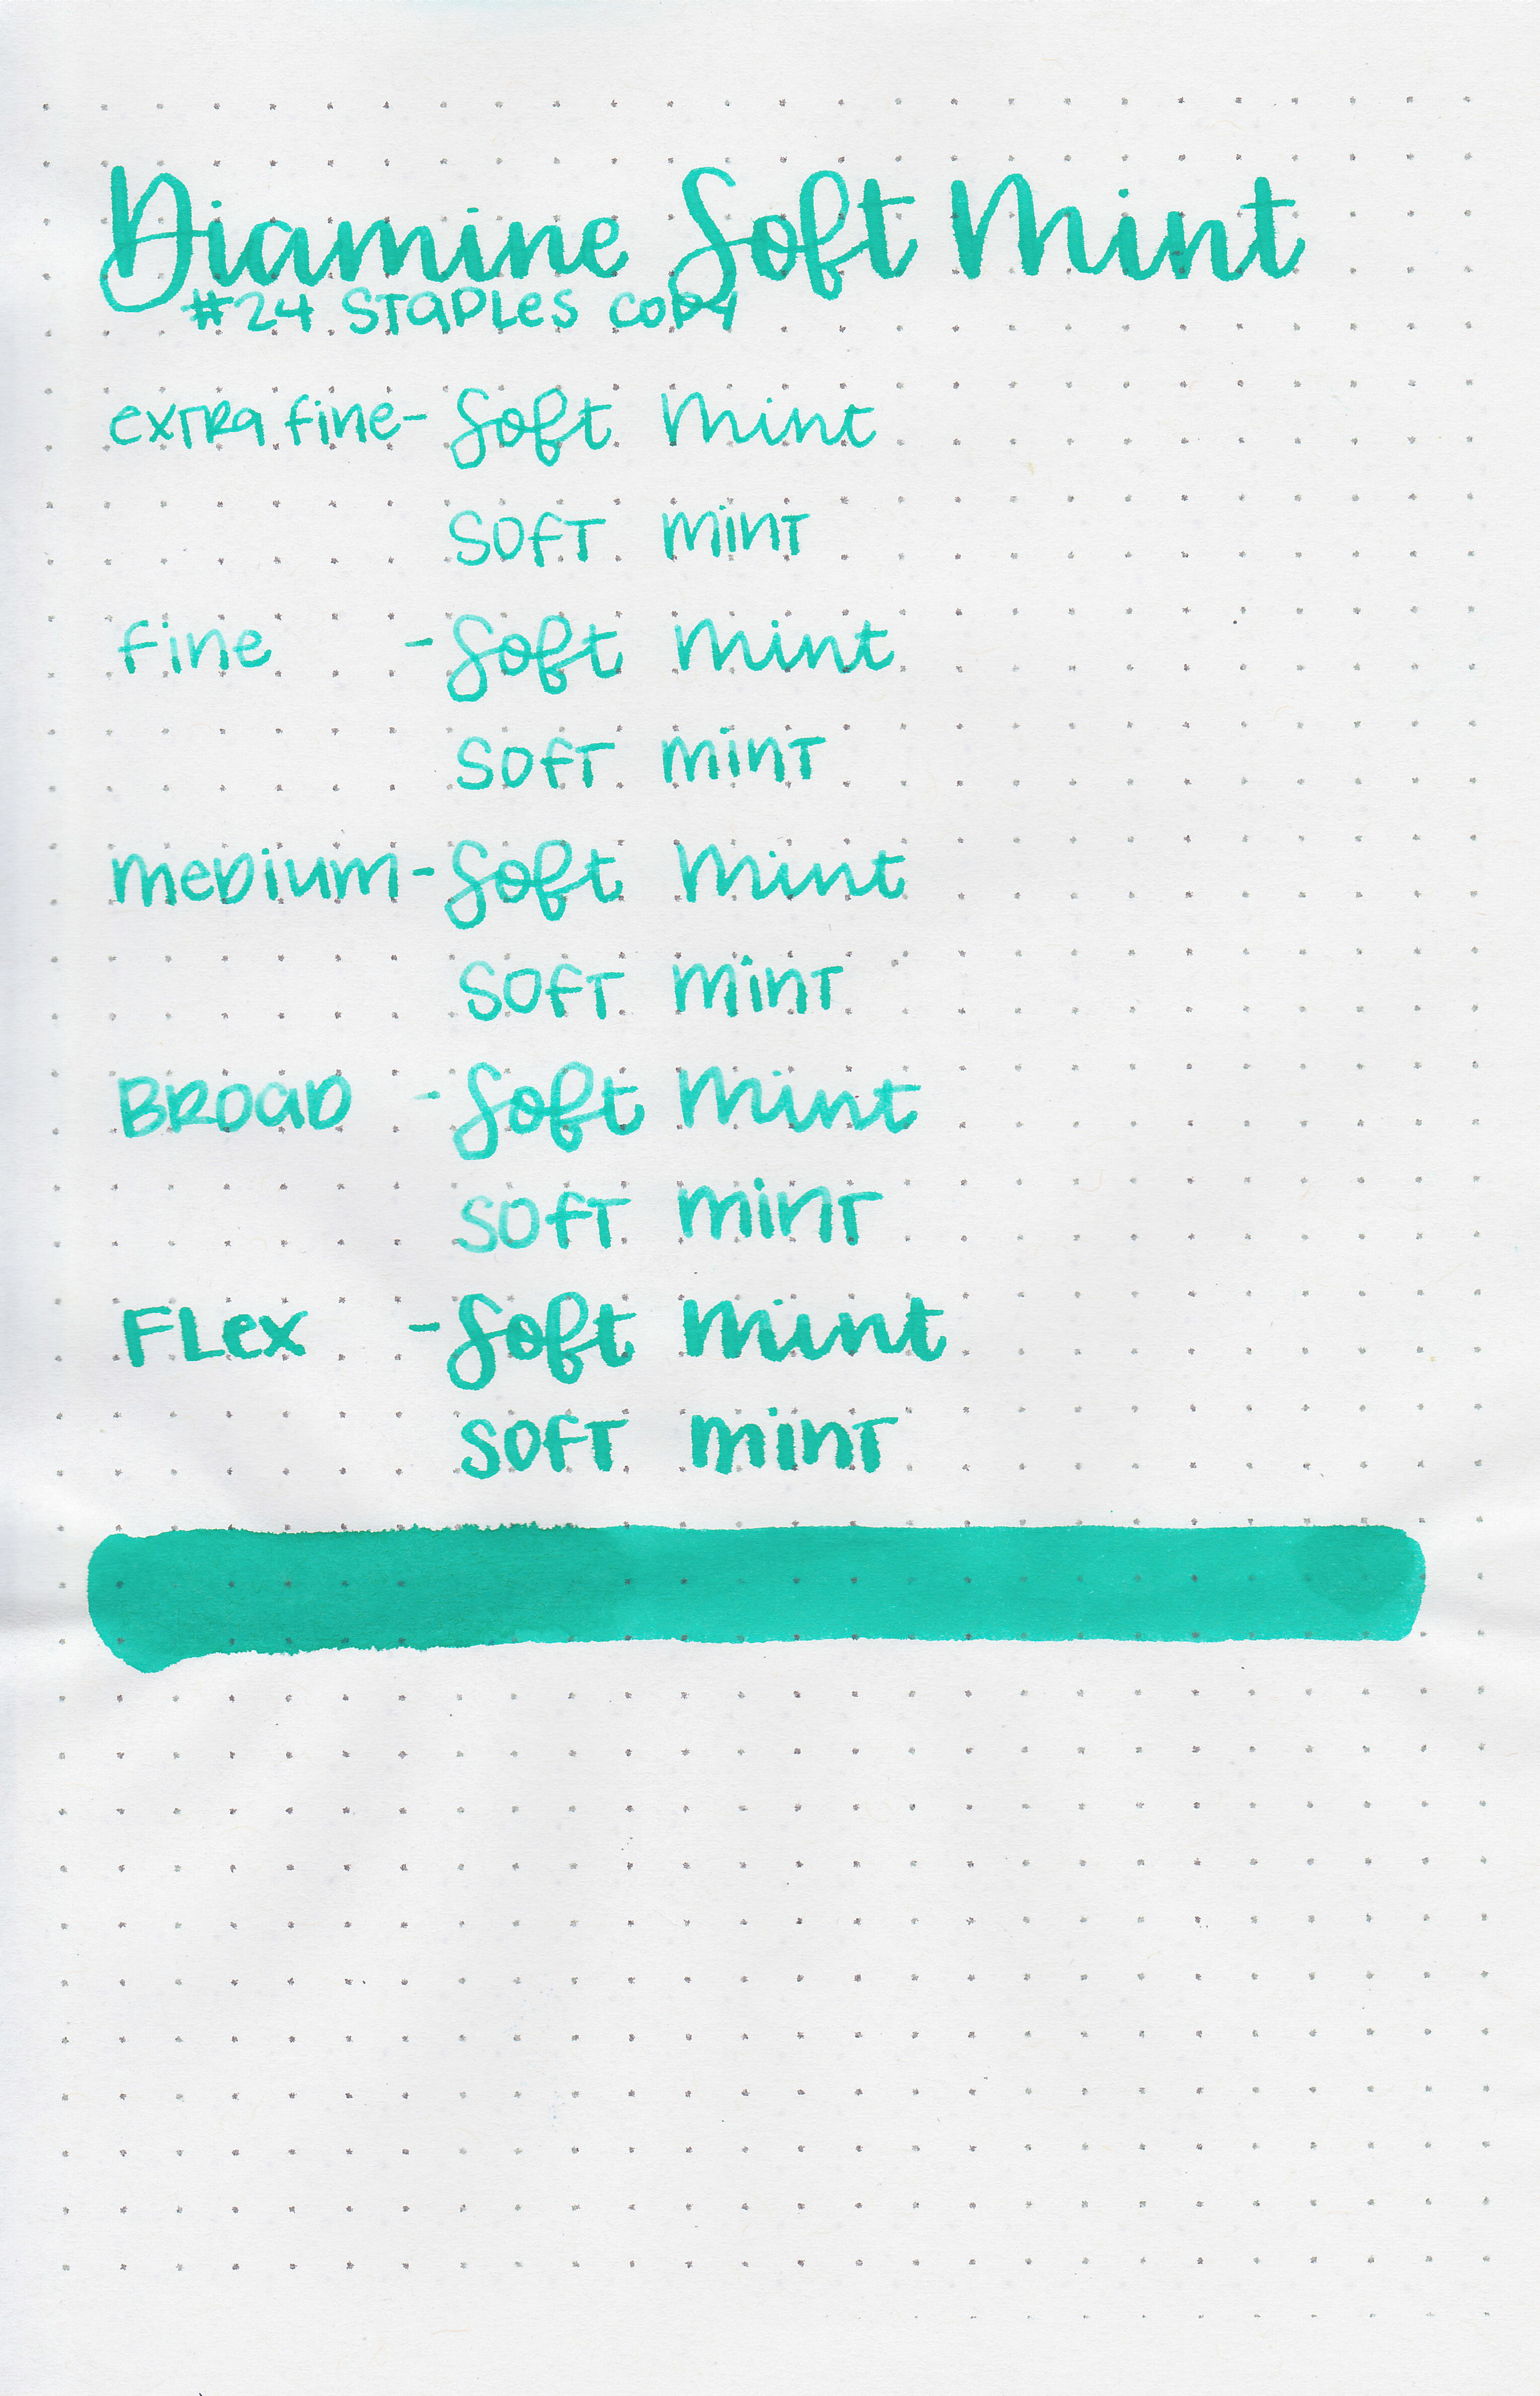 Diamine Soft Mint
#24 Staples copy
extra fine - Soft Mint
soft mint
fine - Soft Mint
soft mint
medium - Soft Mint
soft mint
Broad - Soft Mint
soft mint
Flex - Soft Mint
soft mint